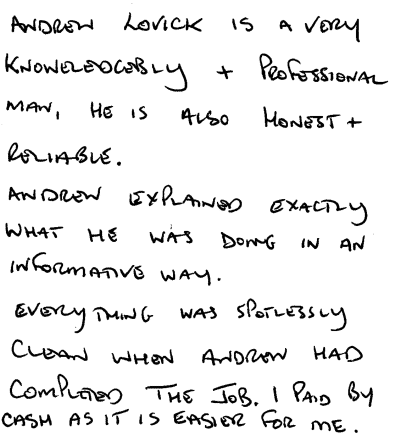 ANDREW LOVICK IS A VERY
KNOWELEDGEBLY + PROFESSIONAL
MAN, HE IS ALSO HONEST +
RELIABLE.
ANDREW EXPLAINED EXACTLY
WHAT HE WAS DOING IN AN
INFORMATIVE WAY.
EVERYTHING WAS SPOTLESSLY
CLEAN WHEN ANDREW HAD
COMPLETED THE JOB. I PAID BY
CASH AS IT IS EASIER FOR ME.